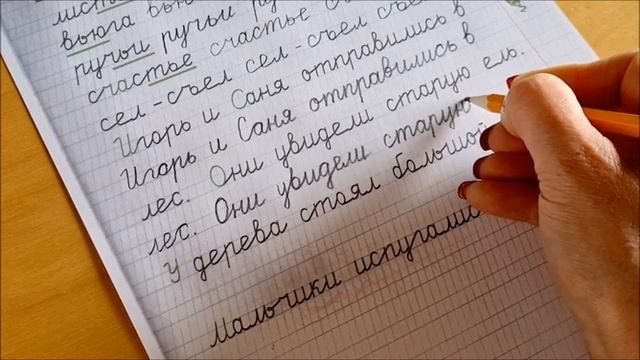 вьюга
ручьи ручьи
счастье счастье
сел-съел сел-съел съел
Игорь и Саня отправились в
Игорь и Саня отправились в
лес. Они увидели старую ель.
лес. Они увидели старую
У дерева стоял большой
Мальчики испугались